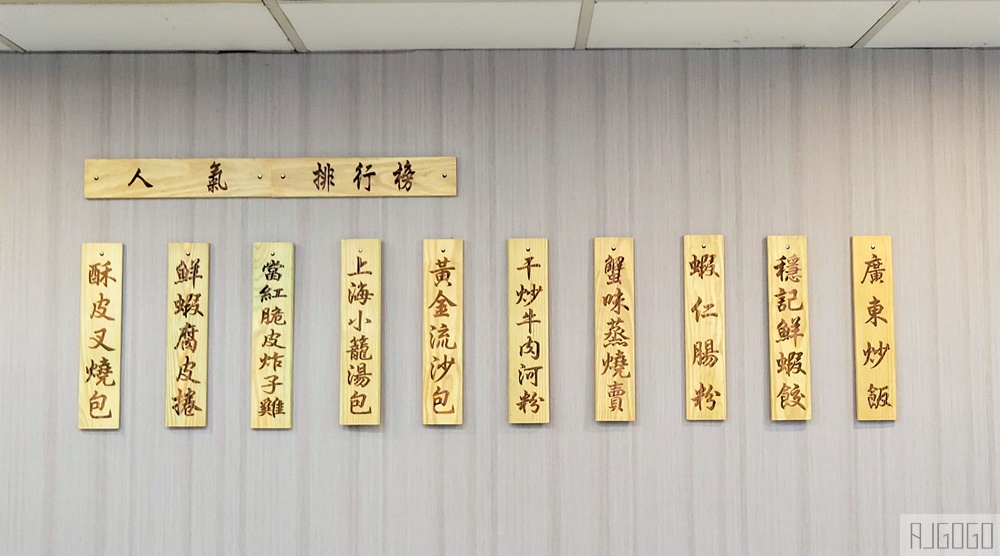 人氣排行榜
酥皮叉燒包
鮮蝦腐皮捲
當紅脆皮炸子雞
上海小籠湯包
黃金流沙包
干炒牛肉河粉
蟹味蒸燒賣
蝦仁腸粉
穩記鮮蝦餃
廣東炒飯
AJGOGO